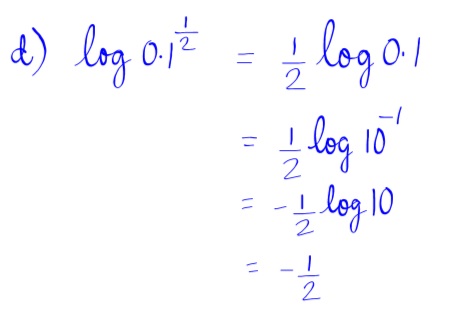 d) log 0.1^{\frac{1}{2}} = \frac{1}{2} log 0.1
= \frac{1}{2} log 10^{-1}
= -\frac{1}{2} log 10
= -\frac{1}{2}